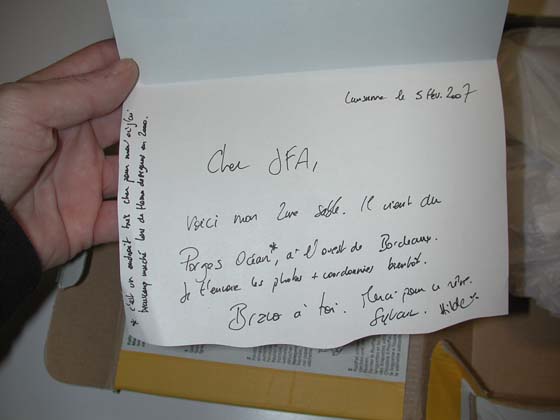 Lausanne le 5 fév. 2007
Cher JFA,
Voici mon 2ème sable. Il vient du
Porges Océan*, à l'ouest de Bordeaux.
Je t'encore les photos + coordonnées bientôt.
Bravo à toi. Merci pour ce
Sylvain.
* c'est un endroit très cher pour moi où j'ai
beaucoup marché lors de en 2000.